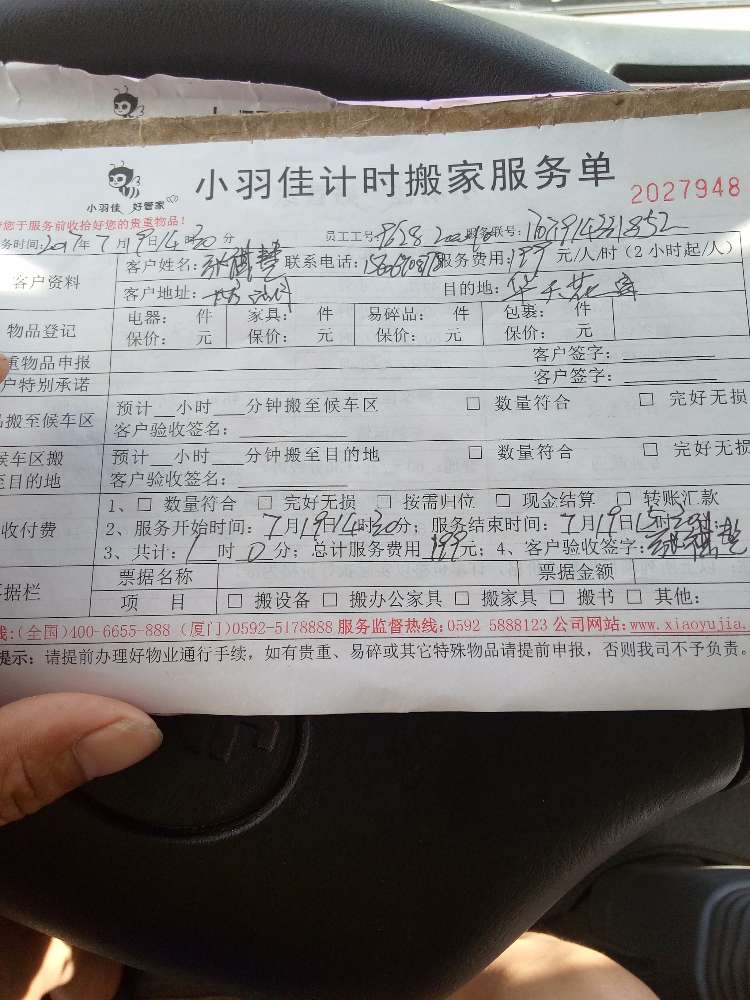 小羽佳 好管家
小羽佳计时搬家服务单
2027948
您于服务前收拾好您的贵重物品！
务时间:2017年7月19日14时30分 员工工号: 服务联号:
客户资料
客户姓名: 联系电话: 服务费用:199元/人/时(2小时起/人)
客户地址: 目的地:
物品登记
电器: 件 家具: 件 易碎品: 件 包裹: 件
保价: 元 保价: 元 保价: 元 保价: 元
重物品申报 客户签字:
户特别承诺 客户签字:
搬至候车区
预计__小时___分钟搬至候车区 □ 数量符合 □ 完好无损
客户验收签名:
候车区搬
至目的地
预计__小时___分钟搬至目的地 □ 数量符合 □ 完好无损
客户验收签名:
收付费
1、□ 数量符合 □ 完好无损 □ 按需归位 □ 现金结算 □ 转账汇款
2、服务开始时间:7月19日14时30分; 服务结束时间:7月19日15时30
3、共计:1时0分; 总计服务费用199元; 4、客户验收签字:
据栏
票据名称 票据金额
项 目 □ 搬设备 □ 搬办公家具 □ 搬家具 □ 搬书 □ 其他:
线:(全国)400-6655-888 (厦门)0592-5178888 服务监督热线:0592 5888123 公司网站:www.xiaoyujia.
提示: 请提前办理好物业通行手续,如有贵重、易碎或其它特殊物品请提前申报,否则我司不予负责。